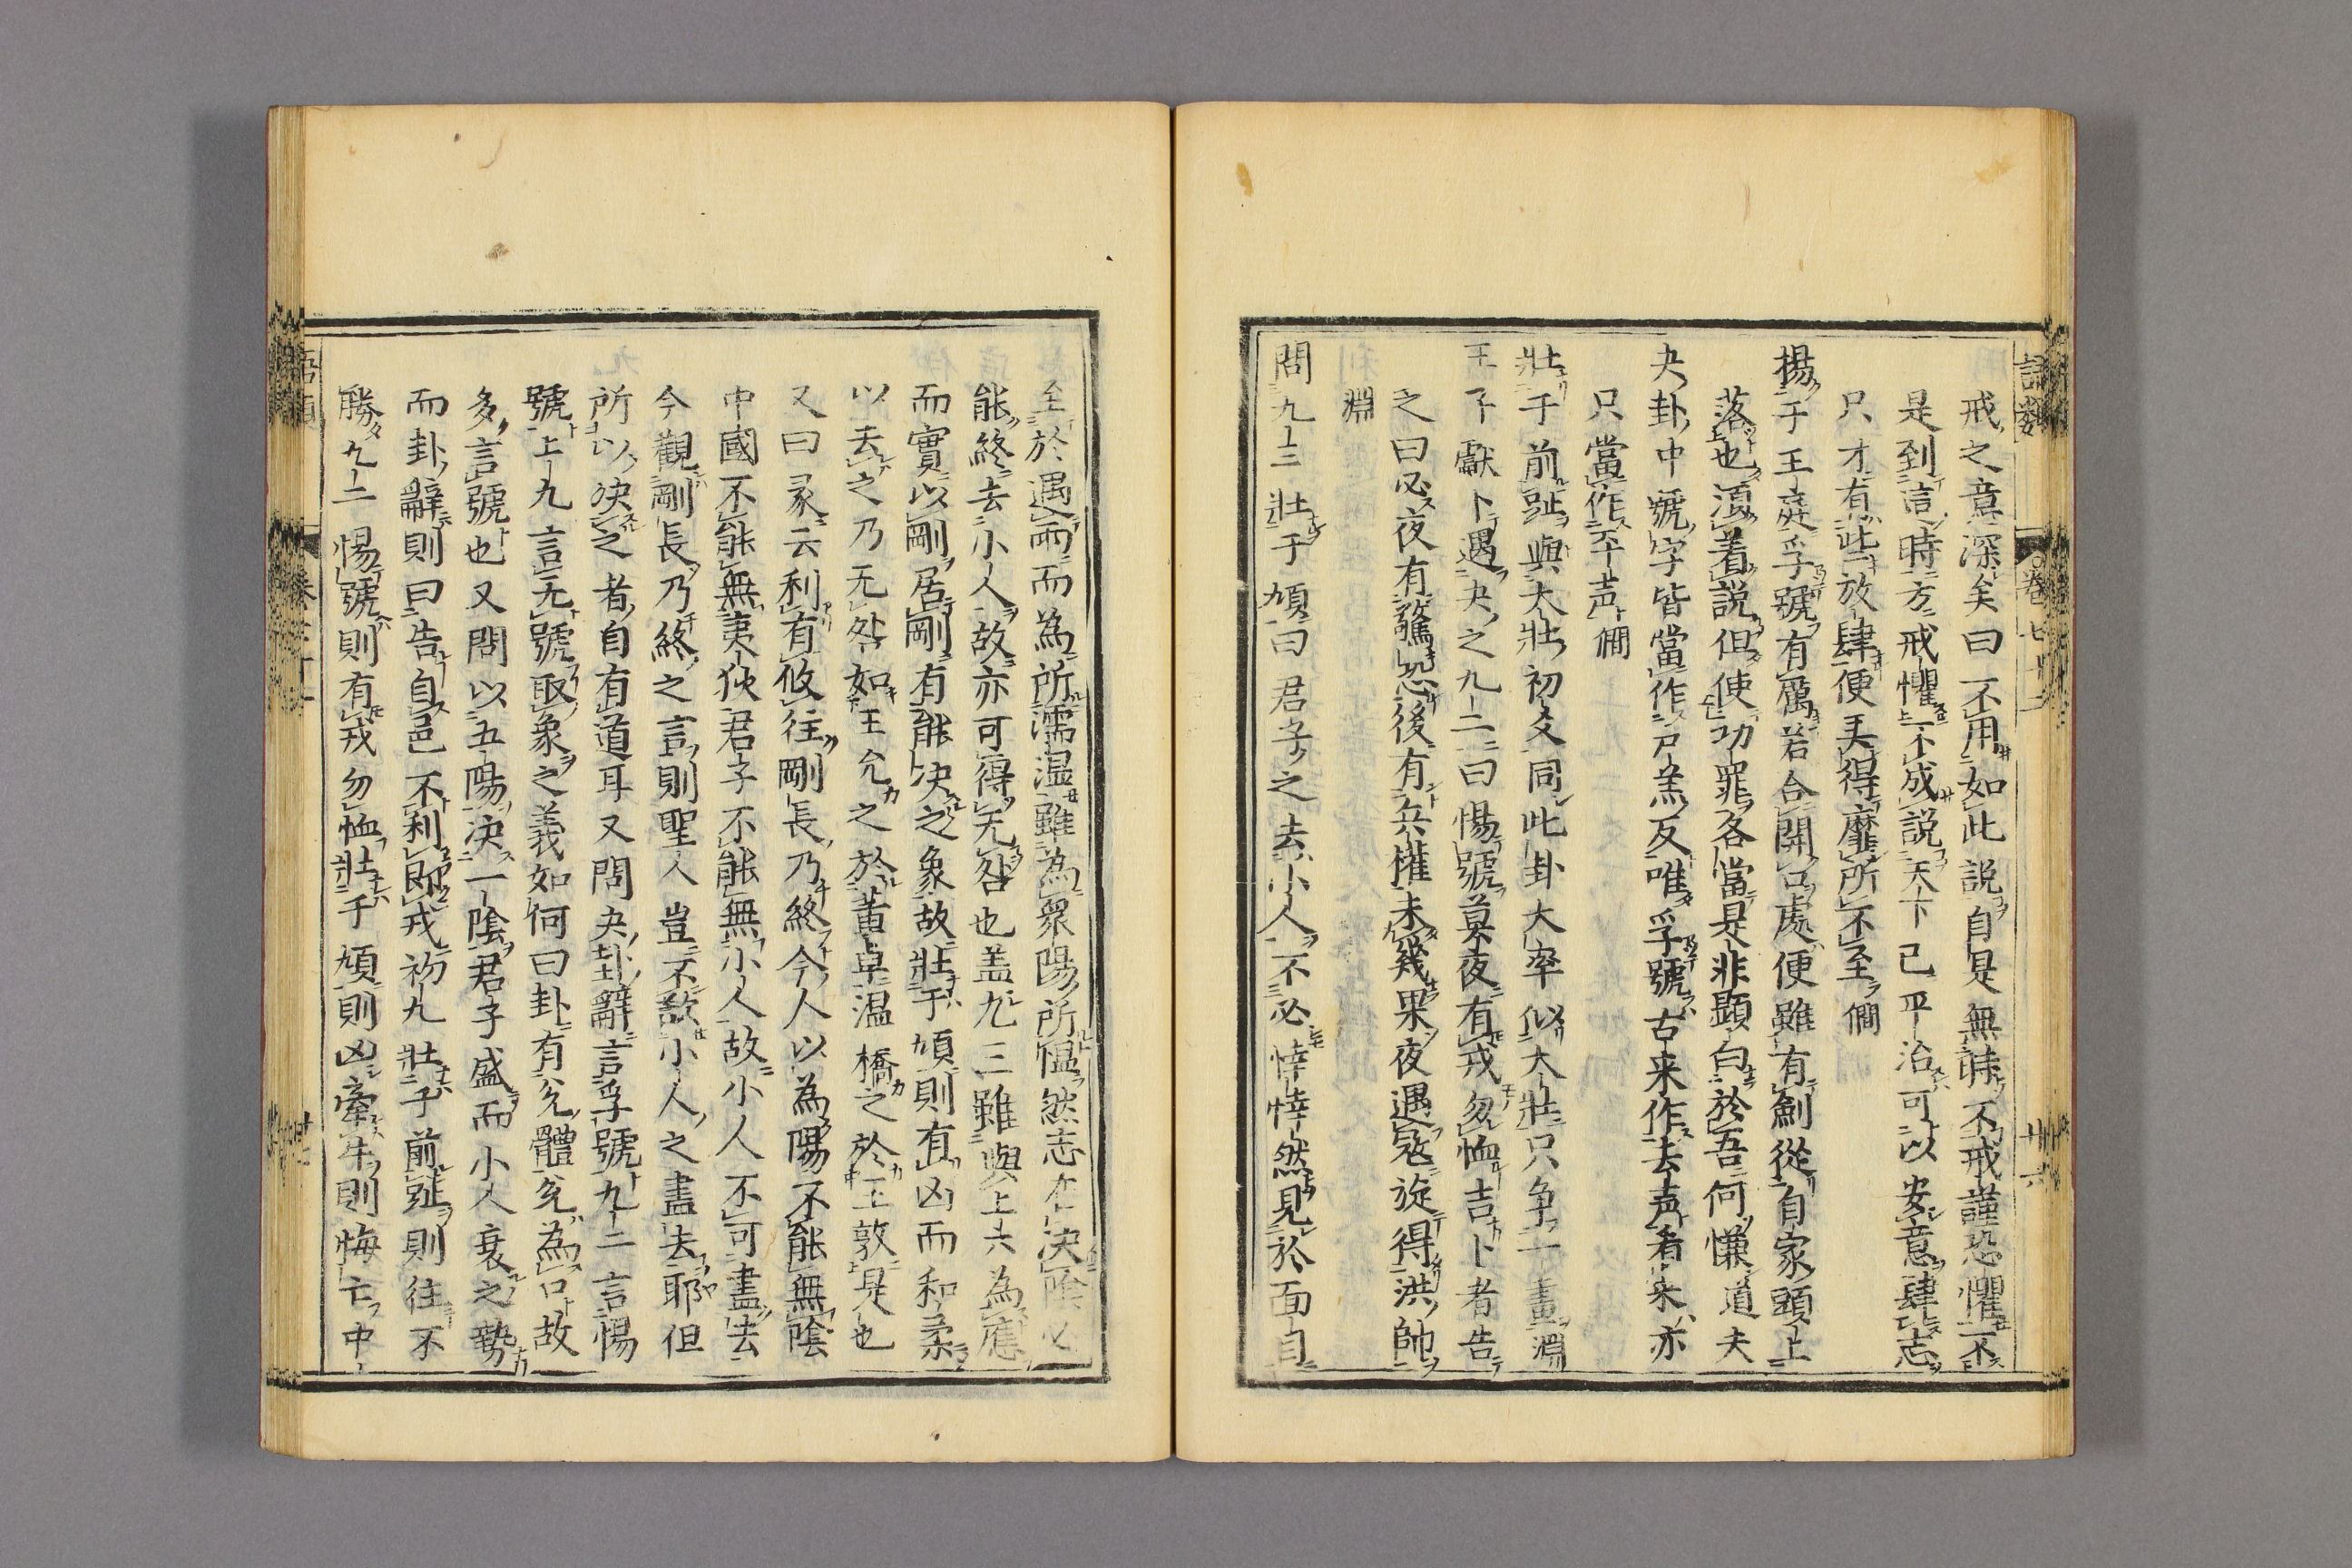 語類 卷七十二 廿六
戒之意深矣曰不用如此說自是無時不戒謹恐懼不
是到這時方戒懼不成說天下已平治可以安意肆志
只才有些放肆便弄得靡所不至 僩
揚于王庭孚號有厲若合開口處便雖有劍從自家頭上
落也須着說但使功罪各當是非顯白於吾何慊道夫
夬卦中號字皆當作戶羔反唯孚號古来作去声看来亦
只當作平声 僩
壯于前趾與大壯初爻同此卦大率似大壯只争一畫 淵
王子獻卜遇夬之九二曰惕號莫夜有戎勿恤吉卜者告
之曰必夜有驚恐後有兵權未幾果夜遇寇旋得洪帥
淵
問九三壯于頄曰君子之去小人不必悻悻然見於面目
至於遇雨而為所濡濕雖為衆陽所慍然志在決陰必
能終去小人故亦可得无咎也盖九三雖與上六為應
而實以剛居剛有能決之象故壯于頄則有凶而和柔
以去之乃无咎如王允之於董卓溫橋之於王敦是也
又曰彖云利有攸往剛長乃終今人以為陽不能無陰
中國不能無夷狄君子不能無小人故小人不可盡去
今觀剛長乃終之言則聖人豈不欲小人之盡去耶但
所以決之者自有道耳又問夬卦辭言孚號九二言惕
號上九言无號取象之義如何曰卦有兌體兌為口故
多言號也又問以五陽決一陰君子盛而小人衰之勢
而卦辭則曰告自邑不利即戎初九壯于前趾則往不
勝九二惕號則有戎勿恤壯于頄則凶牽羊則悔亡中